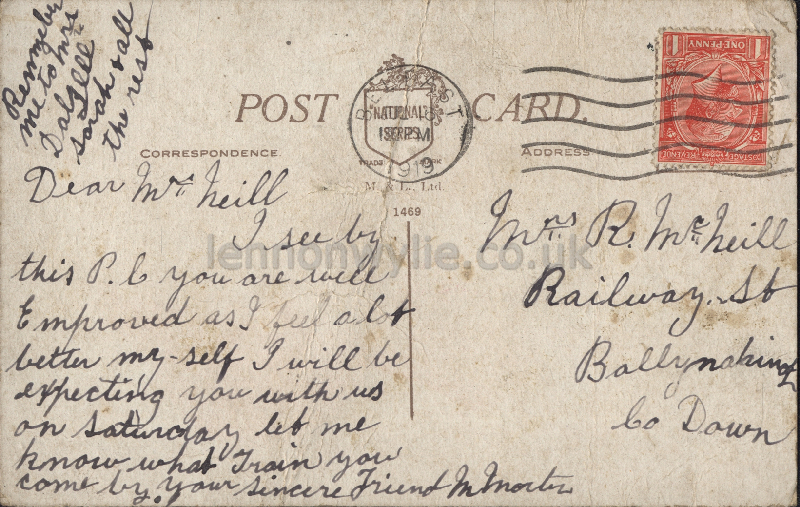 Remember
me to Mrs
Dalzell
Sarah & all
the rest
POST CARD.
BELFAST
NATIONAL
SERIES
1919
TRADE MARK
M. & L., Ltd.
1469
CORRESPONDENCE
ADDRESS
ONE PENNY
POSTAGE REVENUE
Dear Mrs Neill
I see by
this P.C you are well
Emproved as I feel a lot
better my-self I will be
expecting you with us
on Saturday let me
know what Train you
come by. your sincere Friend M
Mrs R. McNeill
Railway St
Ballynahinch
Co Down
lennonwylie.co.uk